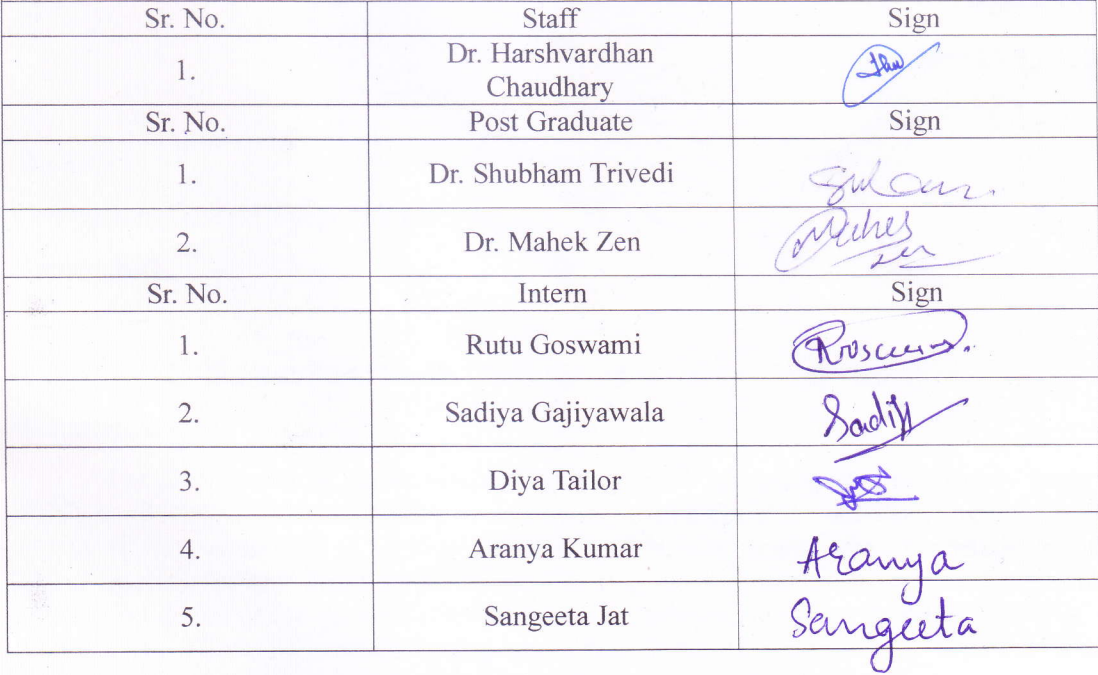 Sr. No. Staff Sign
1. Dr. Harshvardhan
Chaudhary
Sr. No. Post Graduate Sign
1. Dr. Shubham Trivedi
2. Dr. Mahek Zen
Sr. No. Intern Sign
1. Rutu Goswami
2. Sadiya Gajiyawala
3. Diya Tailor
4. Aranya Kumar Aranya
5. Sangeeta Jat Sangeeta